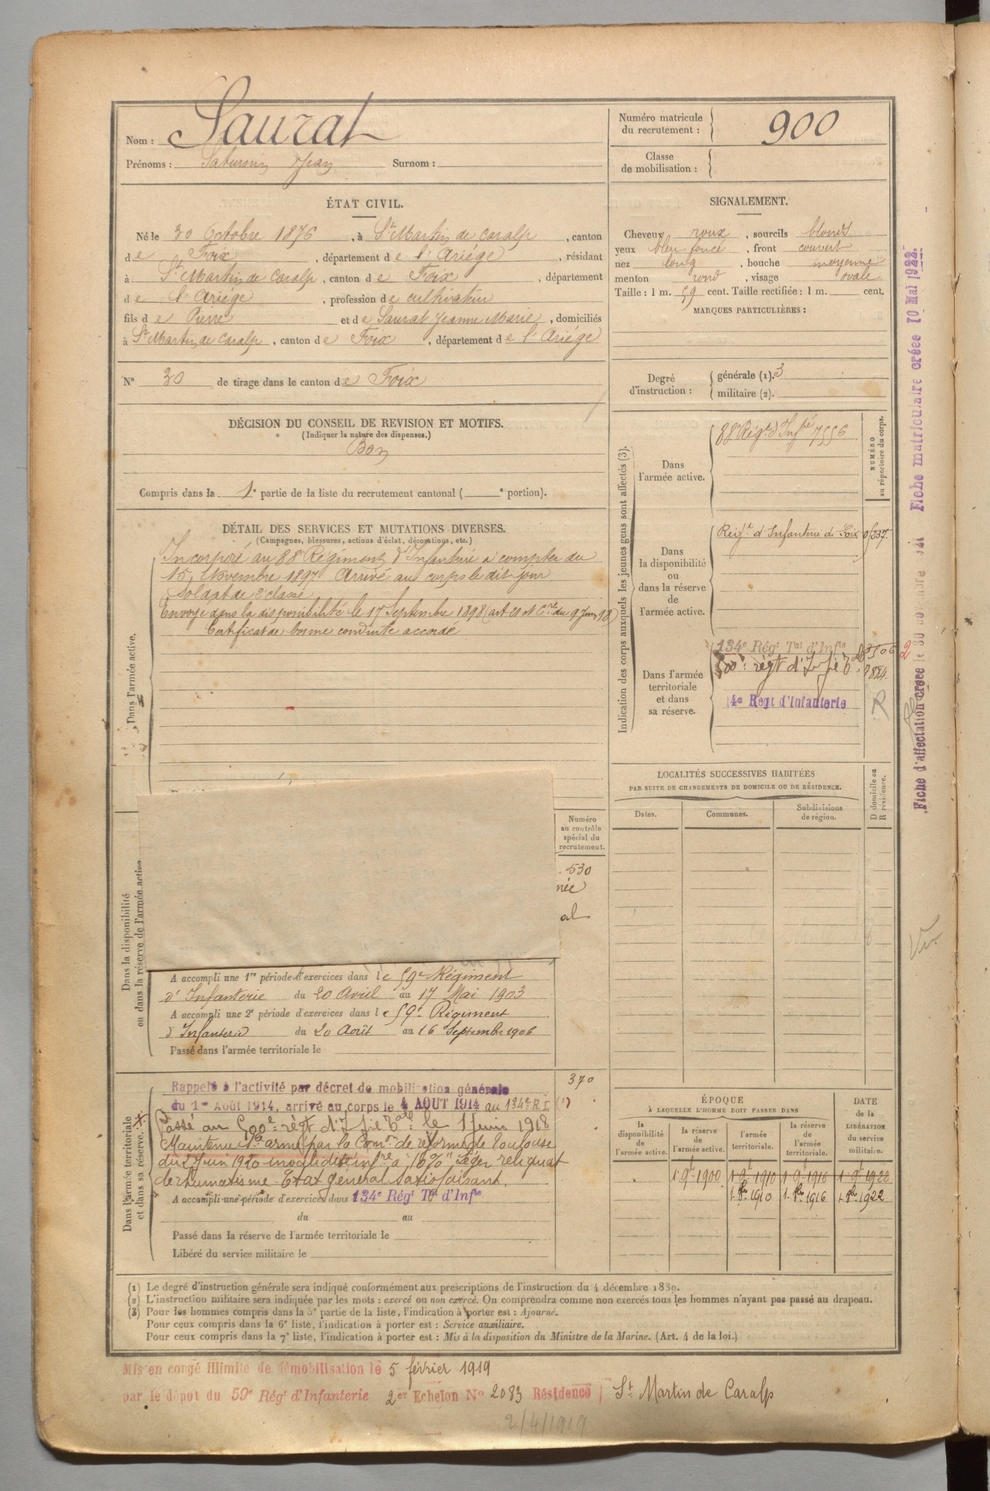 Nom : Saurat
Prénoms : Saturnin Jean Surnom :
Numéro matricule du recrutement : 900
Classe de mobilisation :
ÉTAT CIVIL.
Né le 30 Octobre 1876, à St Martin de Caralp, canton
de Foix, département de l'Ariège, résidant
à St Martin de Caralp, canton de Foix, département
de l'Ariège, profession de cultivateur
fils de Pierre et de Saurat Jeanne Marie, domiciliés
à St Martin de Caralp, canton de Foix, département de l'Ariège
N° 30 de tirage dans le canton de Foix
SIGNALEMENT.
Cheveux roux, sourcils blonds
yeux bleu foncé, front couvert
nez long, bouche moyenne
menton rond, visage ovale
Taille : 1 m. 59 cent. Taille rectifiée : 1 m. cent.
MARQUES PARTICULIÈRES :
Degré d'instruction : générale (1). 3
militaire (2).
DÉCISION DU CONSEIL DE REVISION ET MOTIFS.
(Indiquer la nature des dispenses.)
Bon
Compris dans la 1e partie de la liste du recrutement cantonal ( e portion).
DÉTAIL DES SERVICES ET MUTATIONS DIVERSES.
(Campagnes, blessures, actions d'éclat, décorations, etc.)
Dans l'armée active.
Incorporé au 88e Régiment d'Infanterie à compter du
15 Novembre 1897 Arrivé au corps le dit jour
Soldat de 2e classe
Envoyé dans la disponibilité le 17 Septembre 1898
Certificat de bonne conduite accordé
Indication des corps auxquels les jeunes gens sont affectés (3).
NUMÉRO au répertoire du corps.
Dans l'armée active.
88e Régt d'Infie 7556
Dans la disponibilité ou dans la réserve de l'armée active.
Régt d'Infanterie de Foix
Dans l'armée territoriale et dans sa réserve.
134e Rég Tal d'Infie
500e régt d'Infie Tale
4e Régt d'Infanterie
R
2
LOCALITÉS SUCCESSIVES HABITÉES
PAR SUITE DE CHANGEMENTS DE DOMICILE OU DE RÉSIDENCE.
Dates. Communes. Subdivisions de région. D domicile ou R résidence.
Numéro au contrôle spécial du recrutement.
530
née
al
Dans la disponibilité ou dans la réserve de l'armée active
A accompli une 1re période d'exercices dans le 59e Régiment
d'Infanterie du 20 Avril au 17 Mai 1903
A accompli une 2e période d'exercices dans le 59e Régiment
d'Infanterie du 20 Août au 16 Septembre 1906
Passé dans l'armée territoriale le
Dans l'armée territoriale et dans sa réserve.
370
Rappelé à l'activité par décret de mobilisation générale
du 1er Août 1914, arrivé au corps le 4 AOUT 1914 au 134e R.I.
Passé au 500e régt d'Infie Tale le 1 juin 1918
Maintenu Sce armé par la Comon de réforme de Toulouse
du 2 juin 1920 invalidité infre à 10 % léger reliquat
de rhumatisme. Etat général satisfaisant.
A accompli une période d'exercices dans 134e Rég Tal d'Infie
du au
Passé dans la réserve de l'armée territoriale le
Libéré du service militaire le
ÉPOQUE
À LAQUELLE L'HOMME DOIT PASSER DANS
la disponibilité de l'armée active. la réserve de l'armée active. l'armée territoriale. la réserve de l'armée territoriale.
DATE de la LIBÉRATION du service militaire.
1 9e 1900 1 9e 1910 1 9e 1916 1 9e 1922
1 8bre 1910 1 8bre 1916 1 8bre 1922
(1) Le degré d'instruction générale sera indiqué conformément aux prescriptions de l'instruction du 4 décembre 1889.
(2) L'instruction militaire sera indiquée par les mots : exercé ou non exercé. On comprendra comme non exercés tous les hommes n'ayant pas passé au drapeau.
(3) Pour les hommes compris dans la 5e partie de la liste, l'indication à porter est : Ajourné.
Pour ceux compris dans la 6e liste, l'indication à porter est : Service auxiliaire.
Pour ceux compris dans la 7e liste, l'indication à porter est : Mis à la disposition du Ministre de la Marine. (Art. 4 de la loi.)
Mis en congé illimité de démobilisation le 5 février 1919
par le dépôt du 59e Régt d'Infanterie 2er Echelon N° 2083 Résidence St Martin de Caralp
2/4/1919
Fiche matriculaire créée 10 Mai 1922
Fiche d'affectation créée le 30